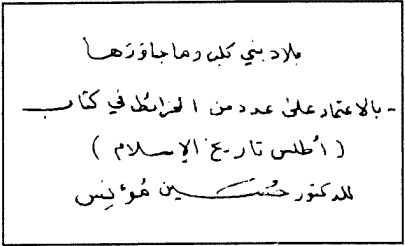 بلاد بني كلب وما جاورها
- بالاعتماد على عدد من الخرائط في كتاب
( أطلس تاريخ الإسلام )
للدكتور حُسَين مُؤنِس